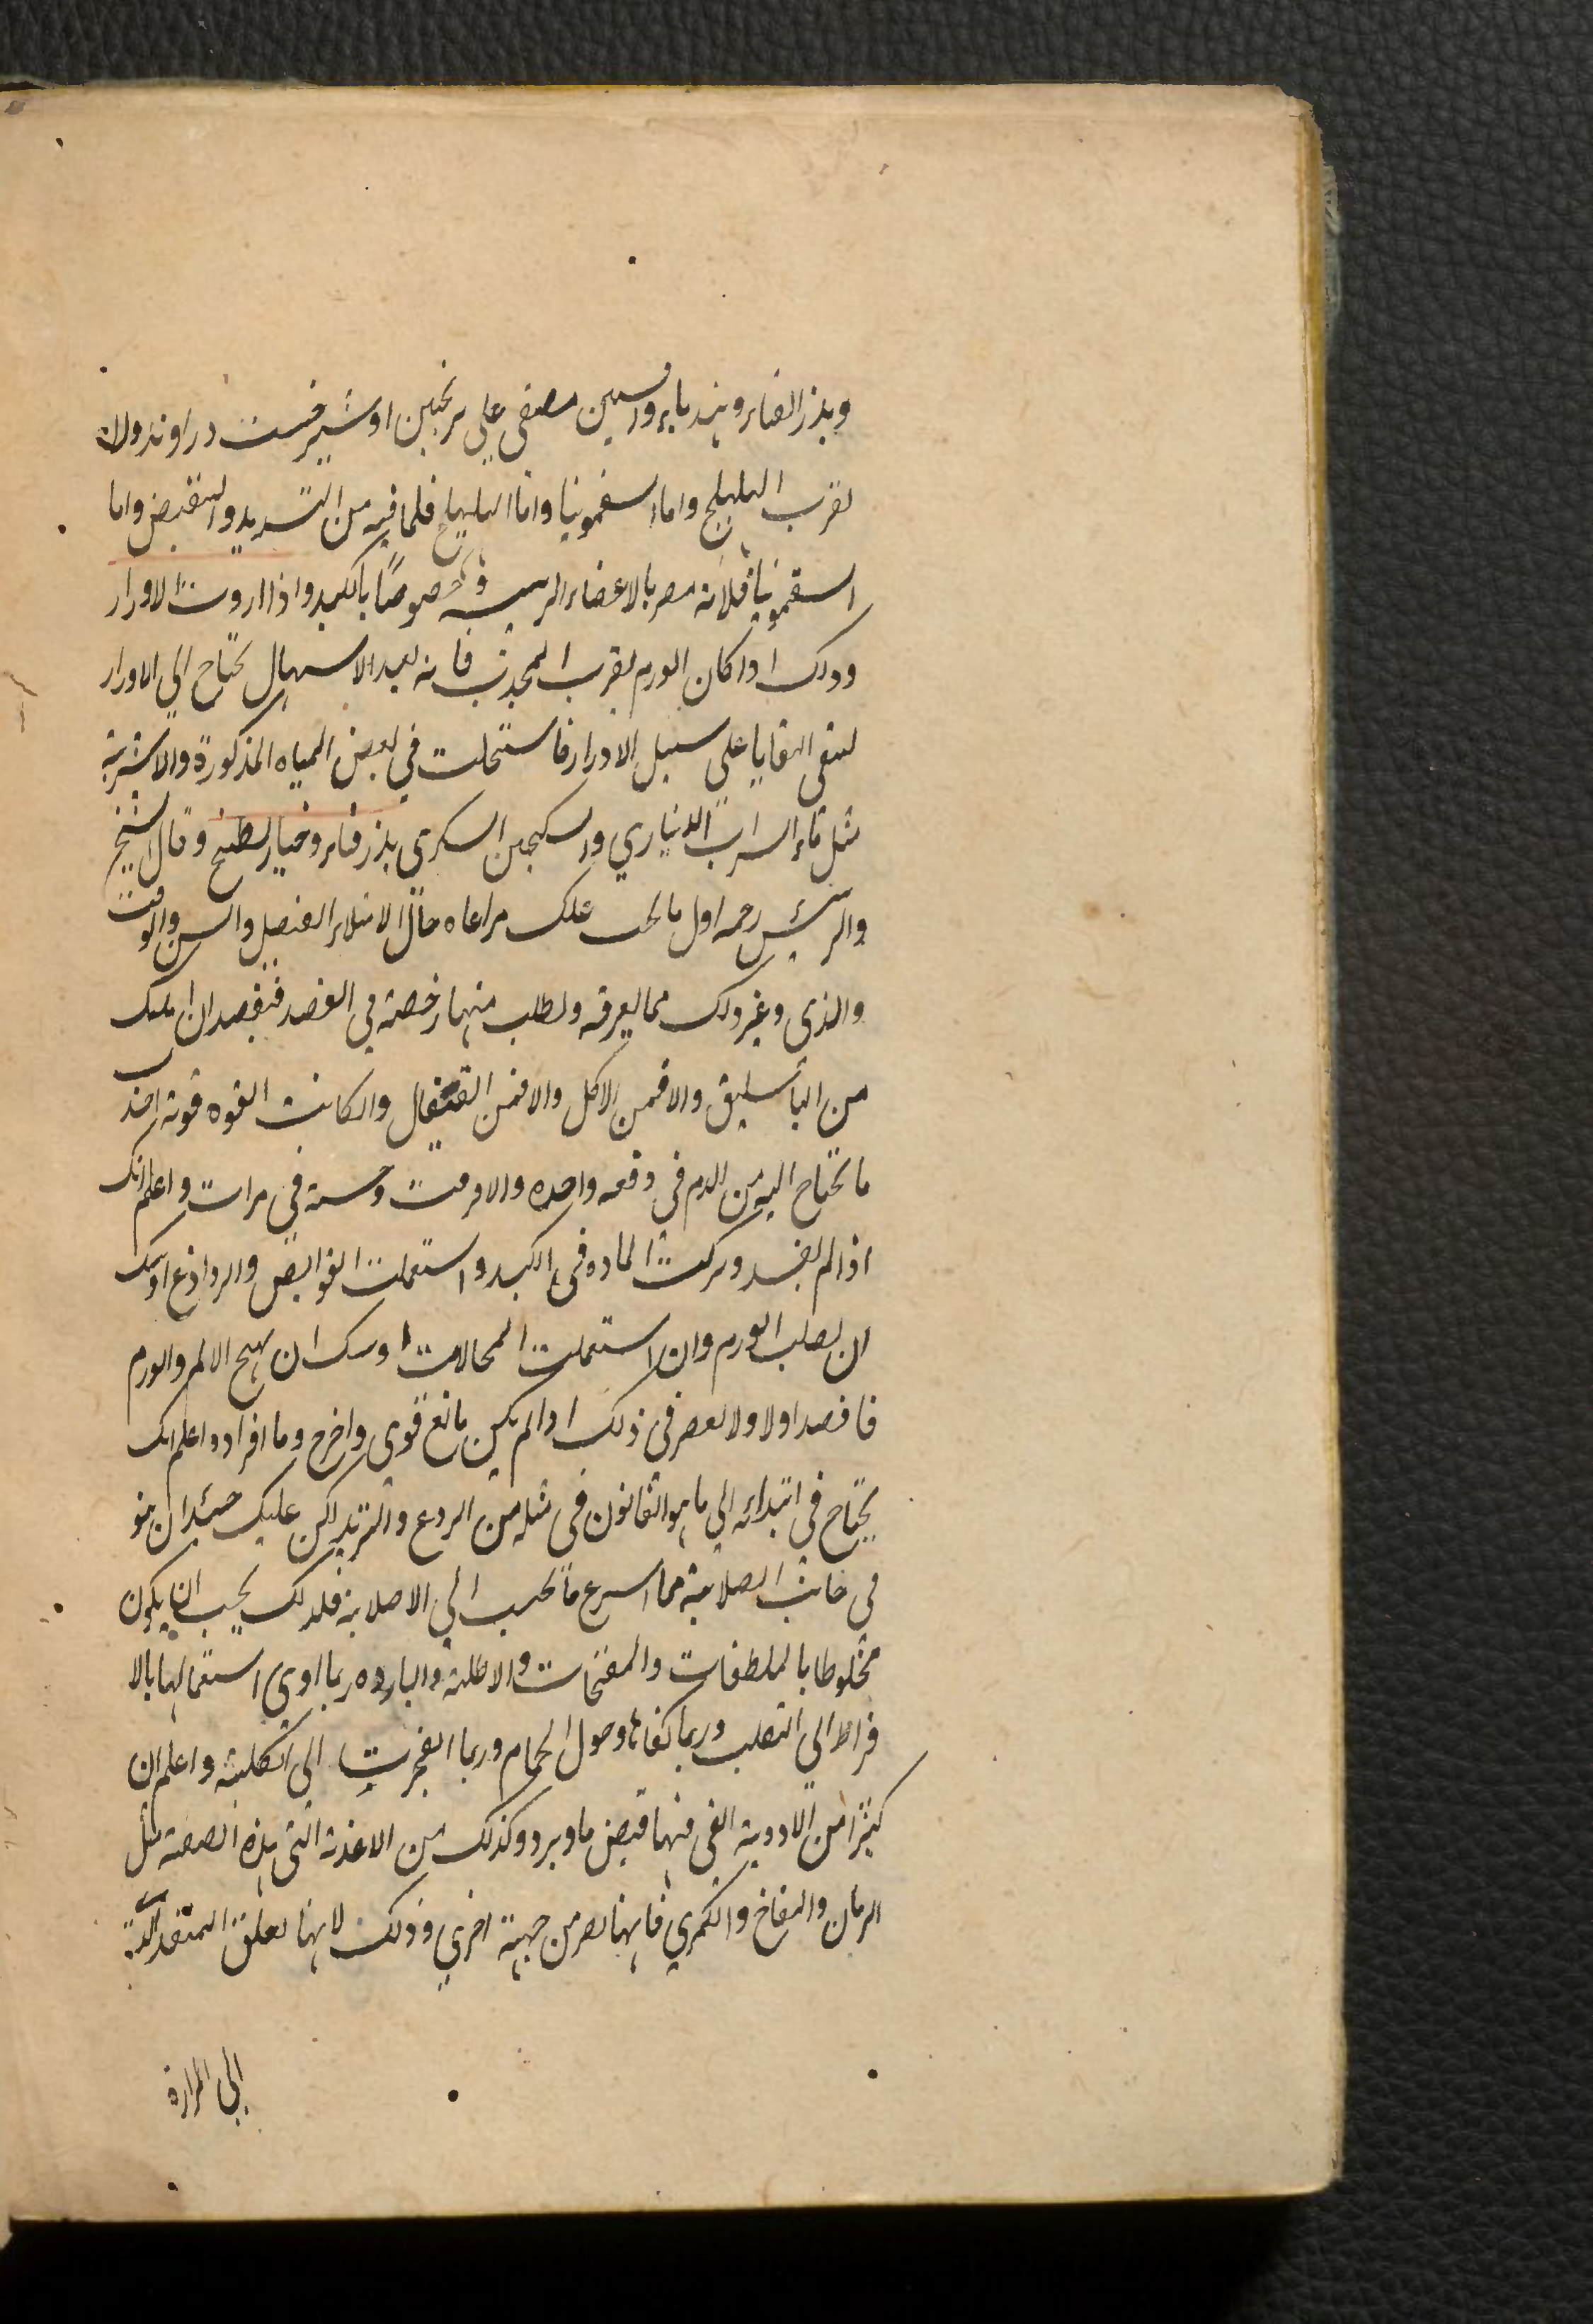 وبذر القثاء وهندباء وراسين مصفى على ترنجبين او شيرخشت وراوند ولا
تقرب الهليلج واما السقمونيا واما الهليلج فلما فيه من التسديد والتقبض واما
السقمونيا فلانه مضر بالاعضاء الرئيسيه وخصوصًا بالكبد واذا اردت الادرار
وذلك اذا كان الورم بقرب المحدب فانه بعد الاسهال تحتاج الى الادرار
لتنقى البقايا على سبيل الادرار فاستعملت في بعض المياه المذكورة والاشربة
مثل ماء الشراب الديناري والسكنجبين السكرى ببذر قثاء وخيار بطيخ وقال الشيخ
والرئيس رحمه اول ما يجب عليك مراعاه حال الامتلاء الفصل والسن والوقت
والذى وغير ذلك مما يعرفه وتطلب منها رخصة في الفصد فتفصد ان امكنك
من الباسليق والا فمن الاكحل والا فمن القيفال وان كانت القوه قويه اخذ
ما تحتاج اليه من الدم في دفعه واحده والا فرقت وخمسة في مرات واعلم انك
اذا لم تفصد وتركت الماده في الكبد واستعملت القوابض والروادع اوشك
ان يصلب الورم وان استعملت المحللات اوشك ان يهيج الالم والورم
فافصد اولا ولا تقصر في ذلك اذا لم يكن مانع قوى واخرج وما افراده اعلم انك
تحتاج في ابتدائه الى ما هو القانون في مثله من الردع والتبريد لكن عليك حينئذ ان تتو
في جانب الصلابة مما اسرع ما تجب الى الاصلابة فلذلك يجب ان يكون
مخلوطا بالملطفات والمفتحات والاطلية والبارده ربما ادى استعمالها بالا
فراط الى التصلب وربما كفاها وصول الحمام وربما انفجرت الى الكلية واعلم ان
كثيرًا من الادوية التي فيها قبض ما وبرد وكذلك من الاغذية التي بهذه الصفة مثل
الرمان والتفاح والكمثرى فانها تضر من جهة اخرى وذلك لانها تغلق المنفد الآتية
الى المرارة